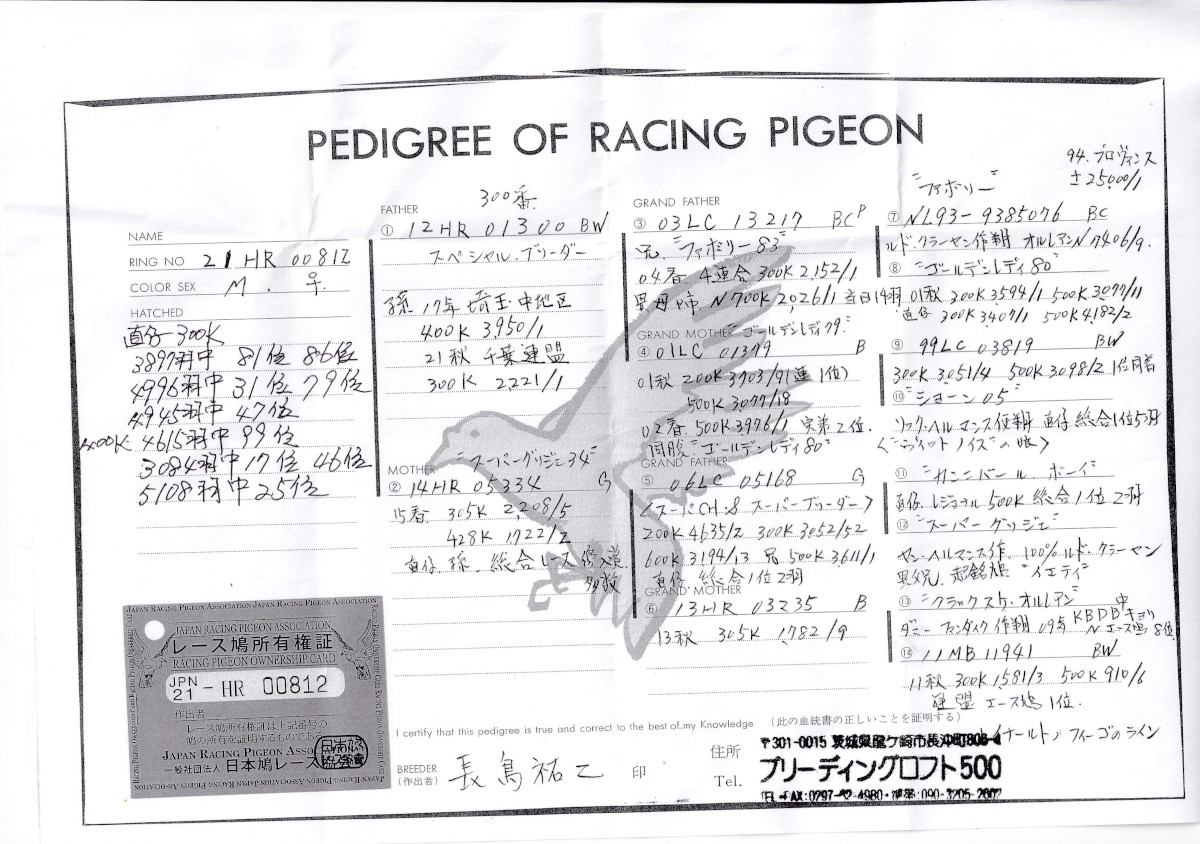 PEDIGREE OF RACING PIGEON
NAME
RING NO 21 HR 00812
COLOR SEX M. ♀
HATCHED
直仔 300K
3897羽中 81位 86位
4996羽中 31位 79位
4945羽中 47位
400K 4615羽中 99位
3084羽中 17位 46位
5108羽中 25位
300番
FATHER
① 12HR 01300 BW
スペシャル・ブリーダー
孫 17年 埼玉中地区
400K 3950/1
21秋 千葉連盟
300K 2221/1
MOTHER "スーパーグリジェ34"
② 14HR 05334 G
15春. 305K 2,208/5
428K 1722/2
直仔. 孫. 総合レース
多数
GRAND FATHER
③ 03LC 13217 BCP
兄. "ファボリー83"
04春. 4連合 300K 2,152/1
異母姉. N700K 2,026/1 当日14羽
GRAND MOTHER "ゴールデンレディ79"
④ 01LC 01379 B
01秋 200K 3703/91(連1位)
500K 3,077/18
02春 500K 3976/1
同腹 "ゴールデンレディ80"
GRAND FATHER
⑤ 06LC 05168 G
〈スーパーCH.8 スーパーブリーダー〉
200K 4635/2 300K 3052/52
600K 3194/13 兄 500K 3,611/1
直仔 総合1位 2羽
GRAND MOTHER
⑥ 13HR 03235 B
13秋. 305K 1,782/9
94. プロヴァンス
± 25,000/1
"ファボリー"
⑦ NL93-9385076 BC
ルド.クラーセン作翔 オルレアンN 7406/9.
⑧ "ゴールデンレディ80"
01秋 300K 3594/1 500K 3077/11
直仔 300K 3,407/1 500K 4,182/2
⑨ 99LC 03819 BW
300K 3,051/4 500K 3,098/2 1位同着
⑩ "ショーン05"
直仔 総合1位5羽
⑪ "カンニバール.ボーイ"
直仔. レジョナル 500K 総合1位 2羽
⑫ "スーパーグリジェ"
ヤン.ヘルマンス作. 100%ルド.クラーセン
異父兄. 超銘鳩 "イエティ"
⑬ "クラック・オルレアン"
ダニー ファンダイク作翔 09年 KBDB 中
Nエース鳩 8位
⑭ 11MB11941 BW
11秋 300K 1,581/3 500K 910/6
連盟 エース鳩 1位.
フィーゴのライン
JAPAN RACING PIGEON ASSOCIATION
レース鳩所有権証
RACING PIGEON OWNERSHIP CARD
JPN 21 - HR 00812
作出者
レース鳩所有権証は上記番号の
鳩の所有を証明するものである
JAPAN RACING PIGEON ASSO
一般社団法人 日本鳩レース
I certify that this pedigree is true and correct to the best of.my Knowledge (此の血統書の正しいことを証明する)
BREEDER (作出者) 長島祐乙 印
住所 〒301-0015 茨城県龍ケ崎市長沖町808-4
ブリーディングロフト500
Tel.